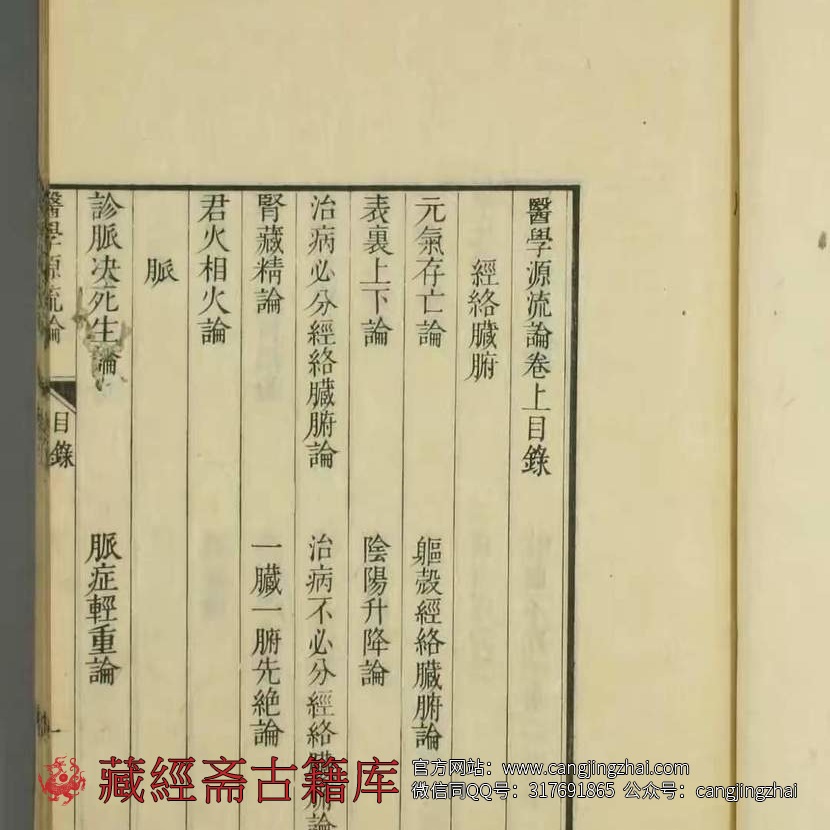 醫學源流論卷上目錄
經絡臟腑
元氣存亡論　軀殼經絡臟腑論
表裏上下論　陰陽升降論
治病必分經絡臟腑論　治病不必分經絡臟腑論
腎藏精論　一臟一腑先絶論
君火相火論
脈
診脈决死生論　脈症輕重論
醫學源流論　目錄　一
藏經斋古籍库
官方网站：www.cangjingzhai.com
微信同QQ号：317691865 公众号：cangjingzhai